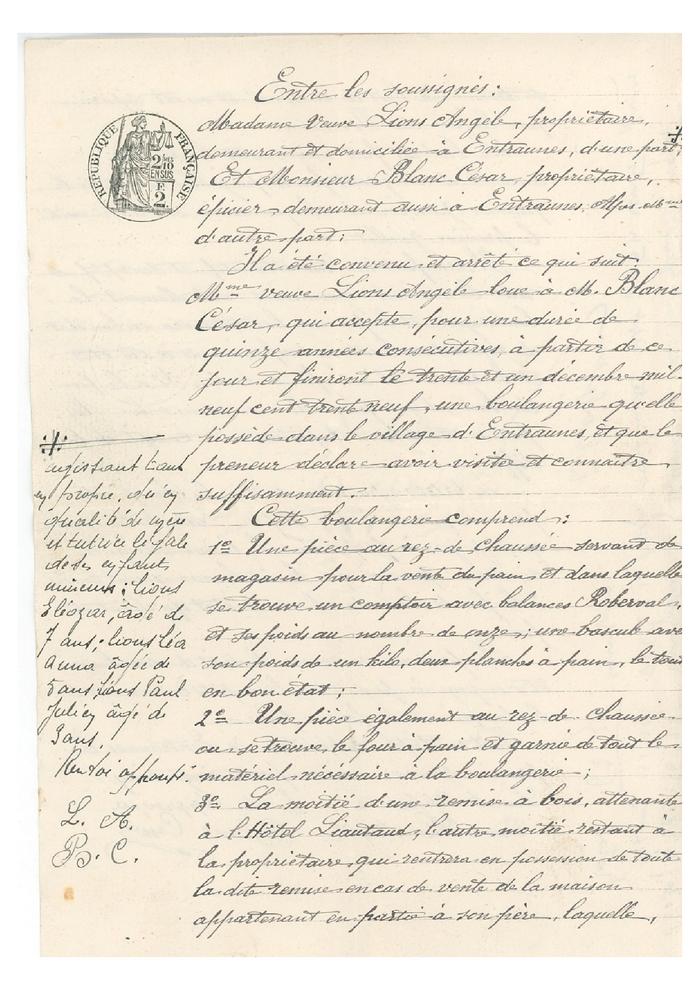 Entre les soussignés:
RÉPUBLIQUE FRANÇAISE
2/10
EN SUS
F
2
Madame Veuve Lions Angèle, propriétaire,
demeurant et domiciliée à Entraunes, d'une part; ./.
Et Monsieur Blanc César, propriétaire,
épicier, demeurant aussi à Entraunes, Alpes Mmes
d'autre part;
Il a été convenu et arrêté ce qui suit:
Mme veuve Lions Angèle loue à M. Blanc
César, qui accepte, pour une durée de
quinze années consécutives, à partir de ce
jour et finiront le trente et un décembre mil
neuf cent trente neuf, une boulangerie qu'elle
possède dans le village d'Entraunes, et que le
preneur déclare avoir visitée et connaître
suffisamment.
Cette boulangerie comprend:
1º Une pièce au rez-de-chaussée servant de
magasin pour la vente du pain et dans laquelle
se trouve un comptoir avec balances Roberval,
et ses poids au nombre de onze; une bascule avec
son poids de un kilo, deux planches à pain, le tout
en bon état;
2º Une pièce également au rez-de-chaussée
ou se trouve le four à pain et garnie de tout le
matériel nécessaire à la boulangerie;
3º La moitié d'une remise à bois, attenante
à l'Hôtel Liautaud, l'autre moitié restant à
la propriétaire qui rentrera en possession de toute
la dite remise en cas de vente de la maison
appartenant en partie à son père, laquelle,
./.
agissant tant
en propre, qu'en
qualité de mère
et tutrice légale
de ses enfants
mineurs: Lions
Eléozar, âgé de
7 ans; Lions Léa
Anna âgée de
5 ans, Lions Paul
Julien âgé de
3 ans.
Renvoi approuvé.
L. A.
B. C.